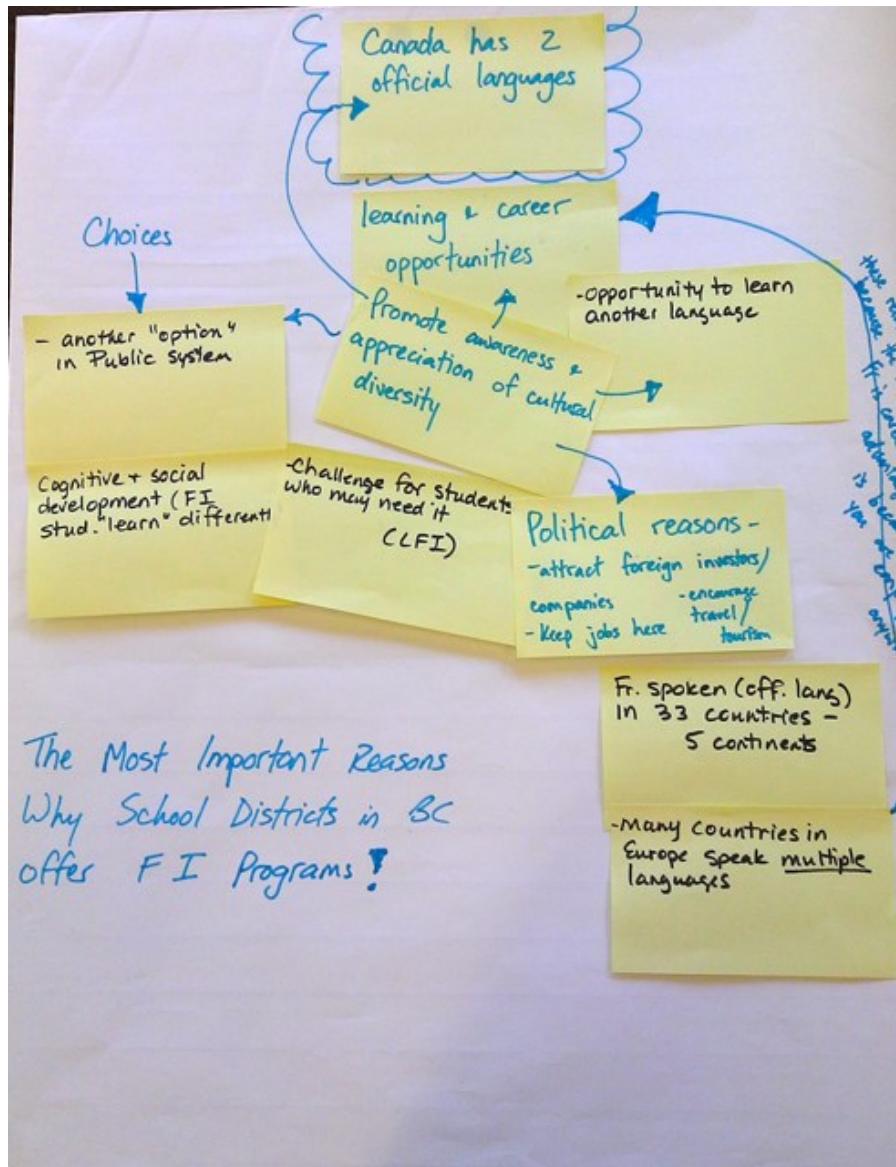 Canada has 2
official languages
learning & career
opportunities
Choices
- another "option"
in Public System
Promote awareness &
appreciation of cultural
diversity
-Opportunity to learn
another language
Cognitive + social
development (FI
stud. "learn" different
-Challenge for students
who may need it
(LFI)
Political reasons -
-attract foreign investors/
companies
- Keep jobs here
-encourage
travel/
tourism
Fr. spoken (off. lang)
in 33 countries -
5 continents
-Many Countries in
Europe speak multiple
languages
The Most Important Reasons
Why School Districts in BC
offer FI Programs!
because